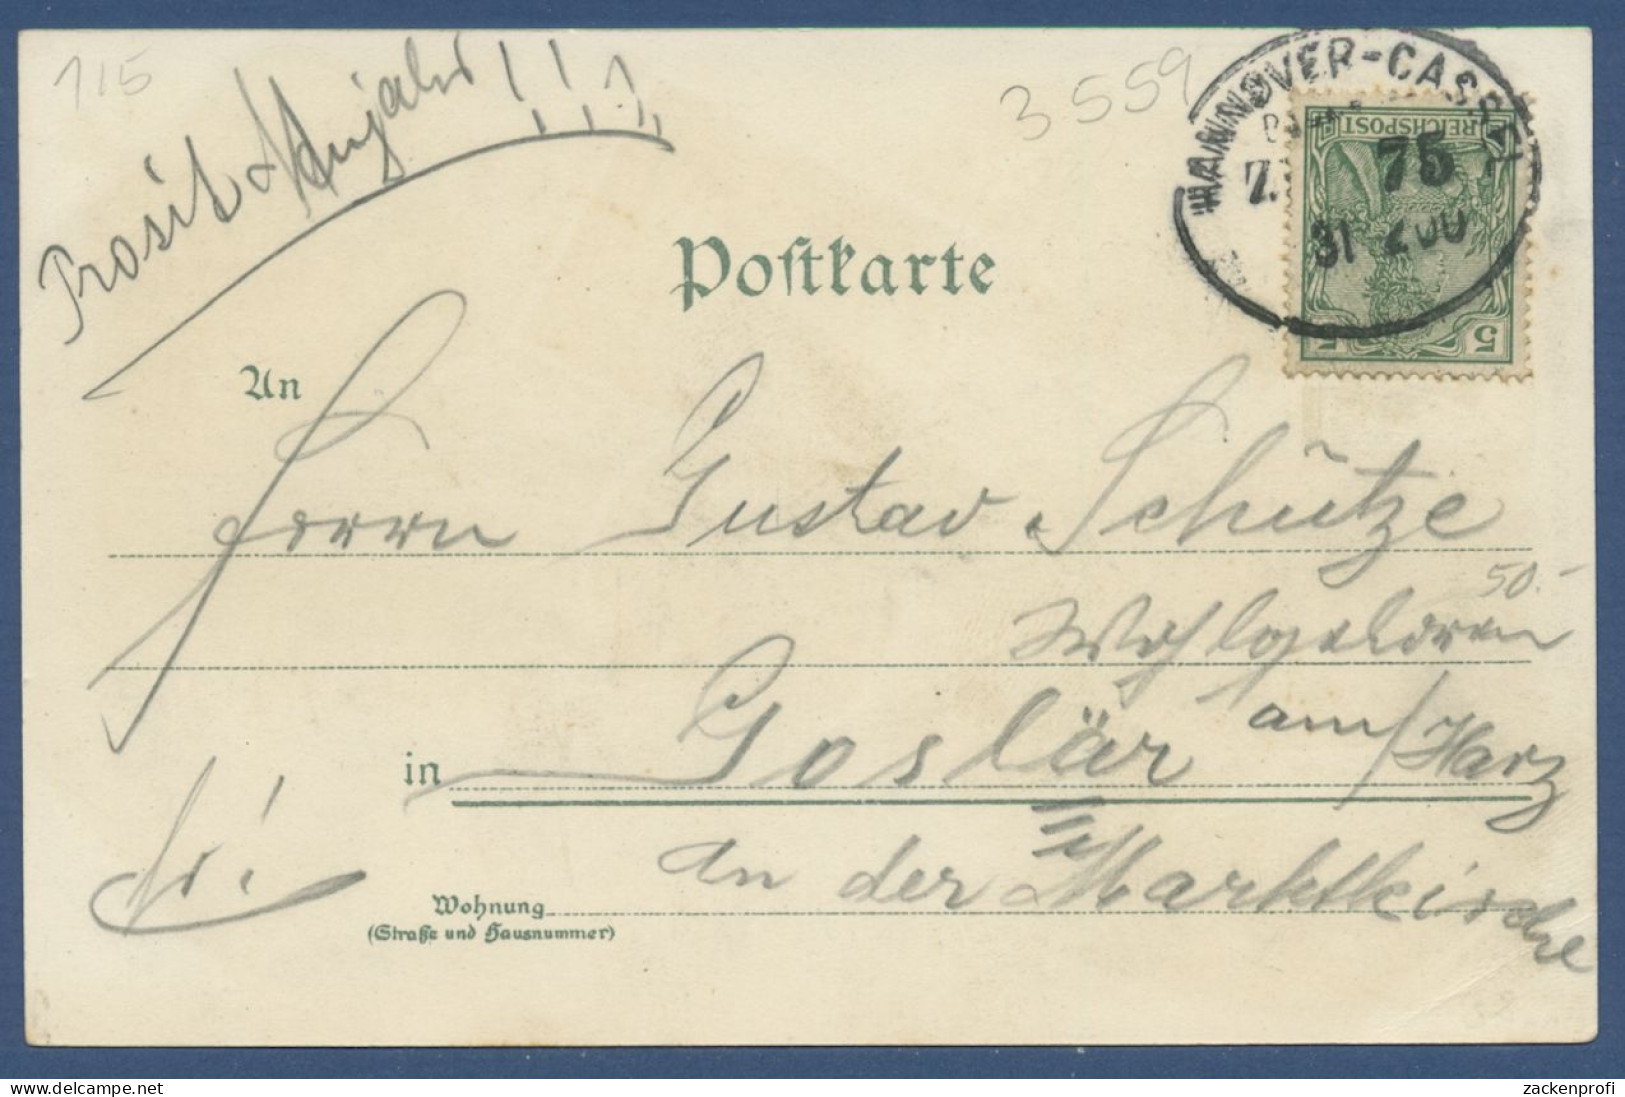 115
Prosit Neujahr!!!
3.559
HANNOVER-CASSEL
Z. 75
31 12 00
REICHSPOST
5 5
Postkarte
An
Herrn Gustav Schütze
50.-
Wohlgeboren
in Goslar am/Harz
An der Marktkirche
Wohnung
(Straße und Hausnummer)
zackenprofi
www.delcampe.net